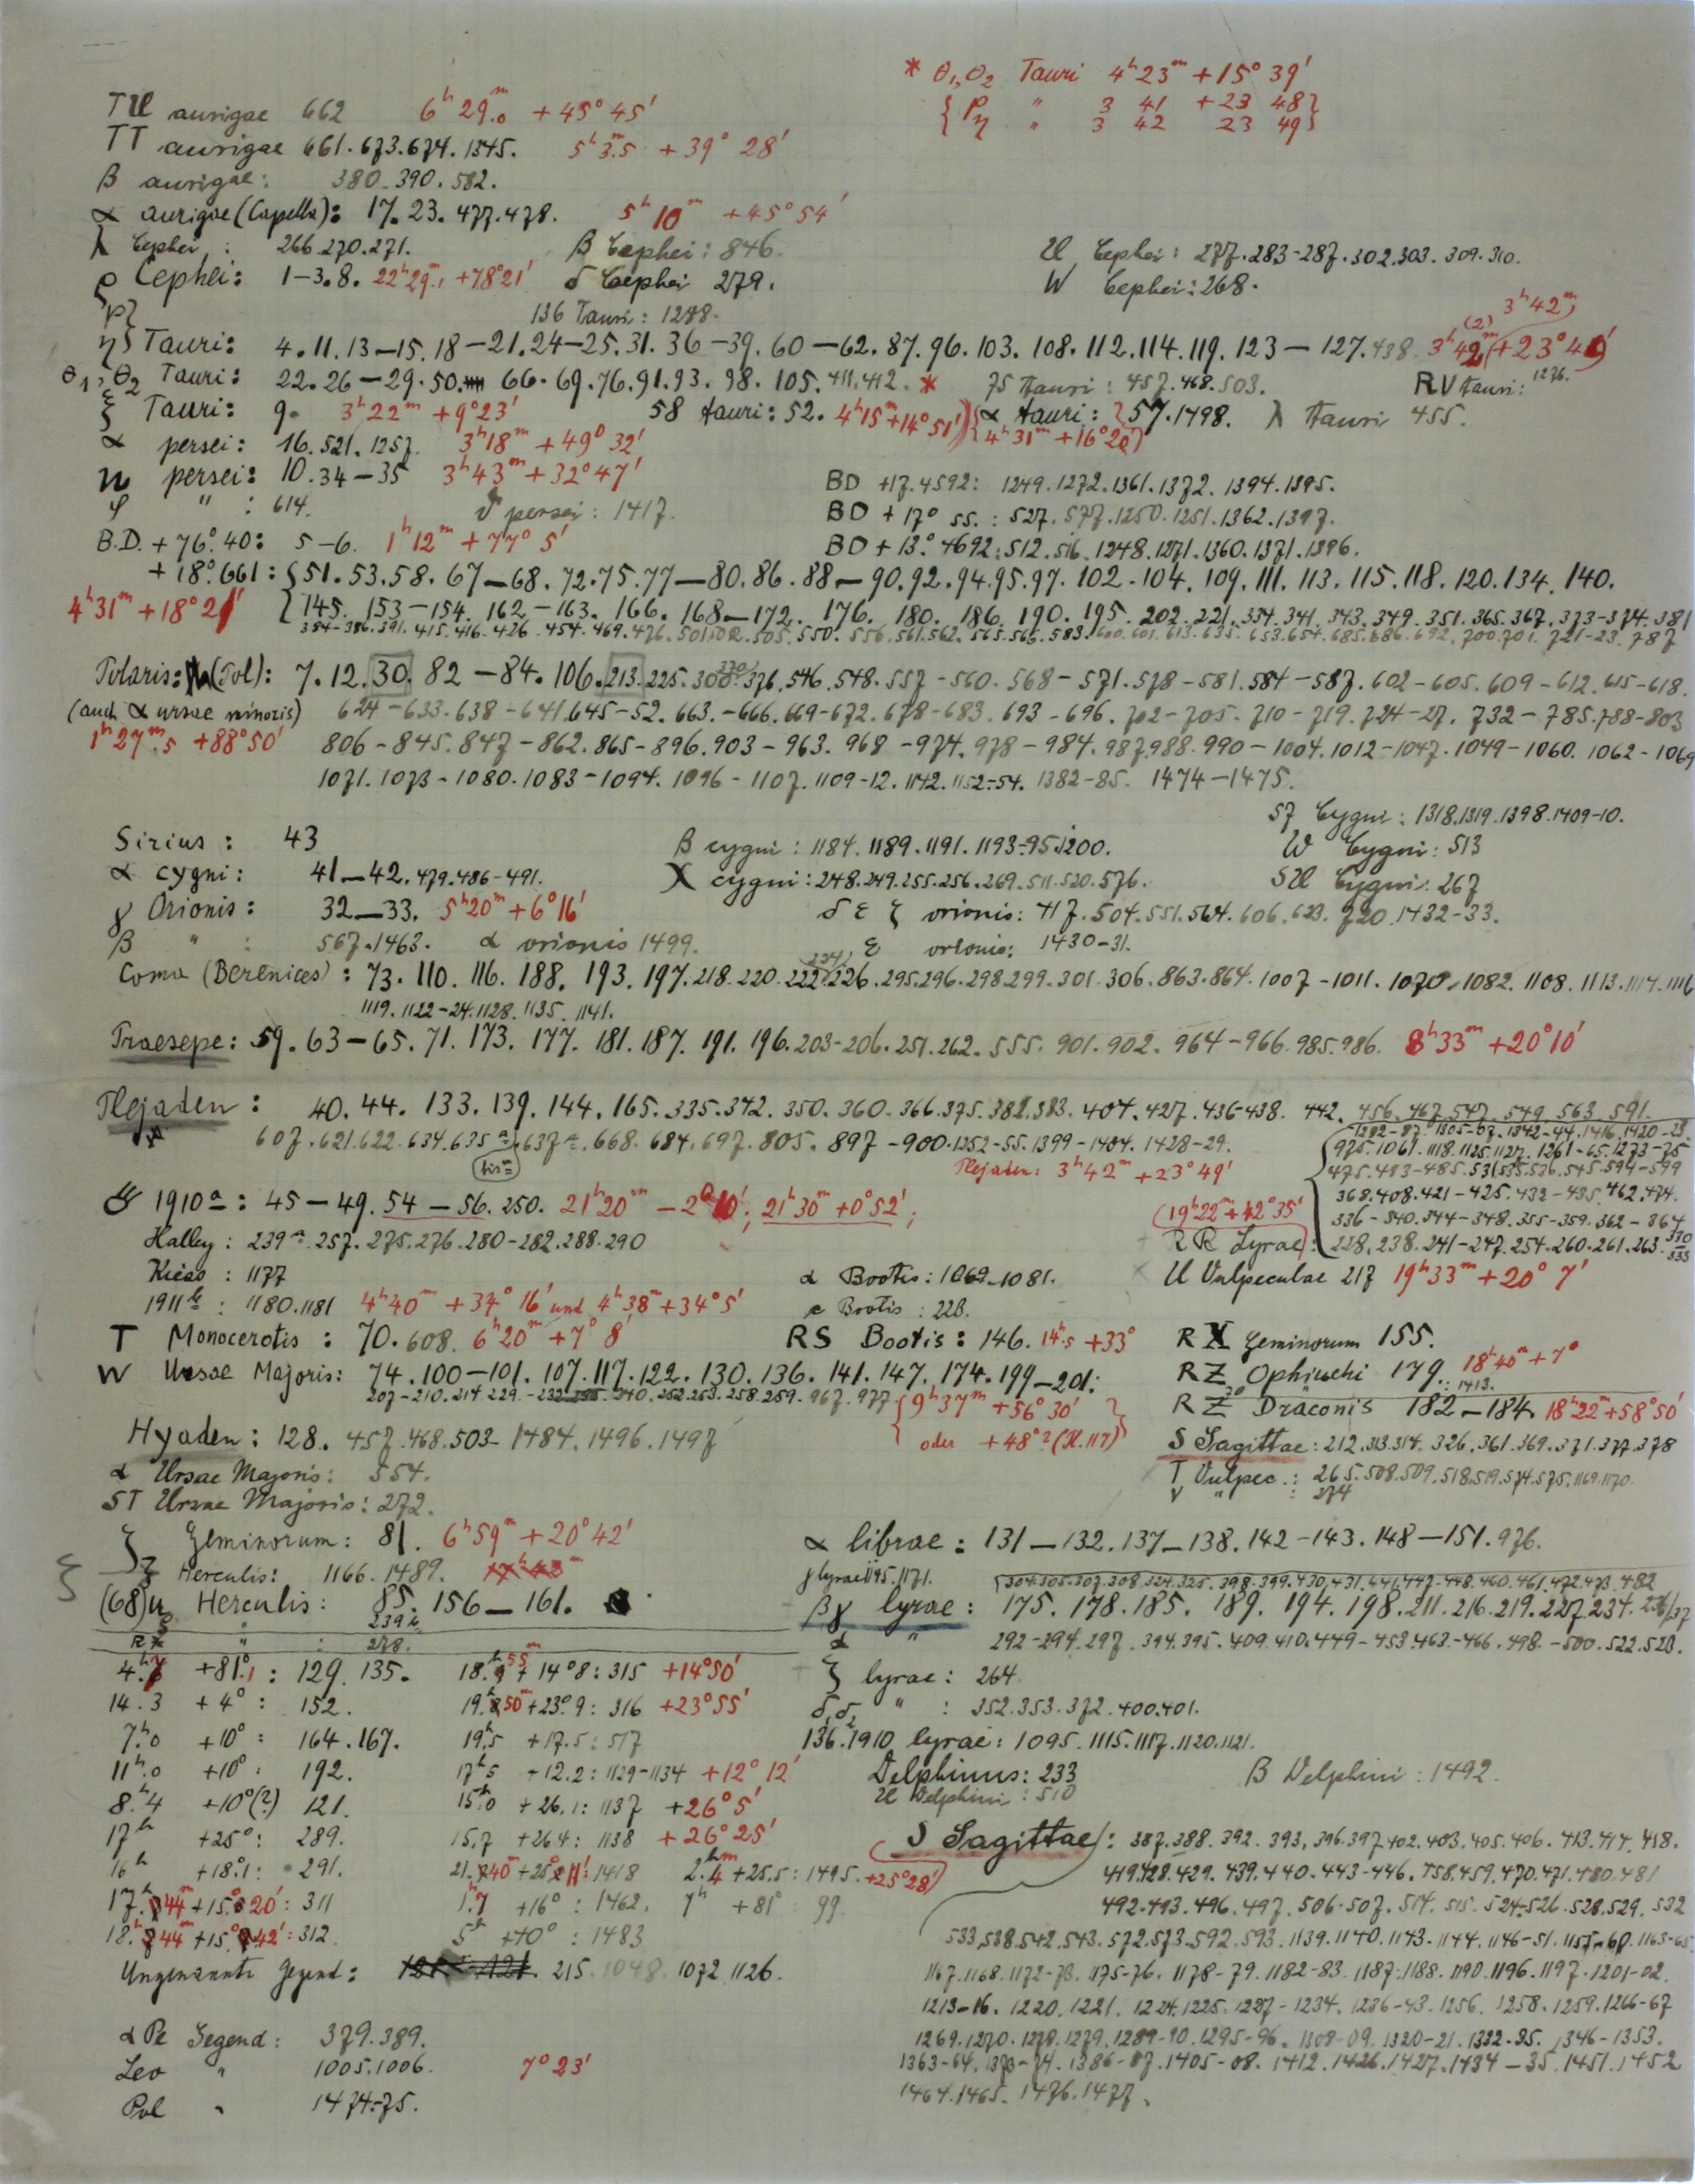 * θ₁,θ₂ Tauri 4ʰ23ᵐ +15° 39'
{ P " 3 41 +23 48 }
{ η " 3 42 23 49 }
TU aurigae 662 6ʰ 29.ᵐ0 +45° 45'
TT aurigae 661.673.674.1345. 5ʰ3.ᵐ5 +39° 28'
β aurigae: 380.390.582.
α aurigae (Capella): 17.23.477.478. 5ʰ 10ᵐ +45° 54'
λ Cephei : 266.270.271. β Cephei: 846. U Cephei: 277.283-287.302.303.309.310.
ρ Cephei: 1-3.8. 22ʰ29.ᵐ1 +78°21' δ Cephei 279. W Cephei: 268.
136 Tauri: 1288. 3ʰ42ᵐ
P} η} Tauri: 4.11.13-15.18-21.24-25.31.36-39.60-62.87.96.103.108.112.114.119.123-127.438.
θ₁,θ₂ Tauri: 22.26-29.50. 66.69.76.91.93.98.105.411.412. * 75 Tauri: 457.468.503. RV Tauri: 1276.
ξ Tauri: 9. 3ʰ22ᵐ +9°23' 58 tauri: 52. 4ʰ15ᵐ+14°51' α tauri: 57.1498. {4ʰ31ᵐ+16°20'} λ Tauri 455.
α persei: 16.521.1257. 3ʰ18ᵐ +49° 32'
n persei: 10.34-35 3ʰ43ᵐ+32°47' BD +17.4592: 1249.1272.1361.1372.1394.1395.
φ " : 614. persei: 1417. BD +17° 55.: 527.577.1250.1251.1362.1397.
B.D. +76°.40: 5-6. 1ʰ12ᵐ +77° 5' BD +13.°4692: 512.516.1248.1271.1360.1371.1396.
+18°.661: {51.53.58.67-68.72.75.77-80.86.88-90.92.94.95.97.102-104.109.111.113.115.118.120.134.140.
4ʰ31ᵐ+18°21' {145.153-154.162-163.166.168-172.176.180.186.190.195.202.221.334.341.343.349.351.365.367.373-374.381
384-386.391.415.416.426.454.469.476.501.502.505.550.556.561.562.565.566.583.600.601.613.635.653.654.685.686.692.700.701.721-23.787
Polaris: (Pol): 7.12.30.82-84.106.213.225.308.376.546.548.557-560.568-571.578-581.584-587.602-605.609-612.615-618.
(auch α ursae minoris) 624-633.638-641.645-52.663-666.669-672.678-683.693-696.702-705.710-719.724-27.732-785.788-803
1ʰ27ᵐ.5 +88°50' 806-845.847-862.865-896.903-963.968-974.978-984.987.988.990-1004.1012-1047.1049-1060.1062-1069
1071.1073-1080.1083-1094.1096-1107.1109-12.1142.1152-54.1382-85. 1474-1475.
57 Cygni: 1318.1319.1398.1409-10.
Sirius: 43 β cygni: 1184.1189.1191.1193-95.1200. W Cygni: 513
α cygni: 41-42.479.486-491. X cygni: 248.249.255.256.269.511.520.576. SU Cygni: 267
γ Orionis: 32-33. 5ʰ20ᵐ+6°16' δ ε ζ orionis: 417.504.551.564.606.623.720.1432-33.
β " : 567.1463. α orionis 1499. ε orionis: 1430-31.
Coma (Berenices): 73.110.116.188.193.197.218.220.222.226.295.296.298.299.301.306.863.864.1007-1011.1070.1082.1108.1113.1114.1116
1119.1122-24.1128.1135.1141.
Praesepe: 59.63-65.71.173.177.181.187.191.196.203-206.251.262.555.901.902.964-966.985.986. 8ʰ33ᵐ +20°10'
Plejaden: 40.44.133.139.144.165.335.342.350.360.366.375.382.383.404.427.436-438.442.456.467.547.549.563.591.
607.621.622.634.635ᵃ 637ᵃ.668.684.697.805.897-900.1252-55.1399-1404.1428-29.
(bisᵐ)
1282-87.1305-07.1342-44.1416.1420-23.
Plejaden: 3ʰ42ᵐ+23°49'
975.1061.1118.1125.1127.1261-65.1273-75
475.483-485.531.535.536.545.594-599
☄ 1910ᵃ: 45-49.54-56.250. 21ʰ20ᵐ 21ʰ30ᵐ+0°52';
368.408.421-425.432-435.462.474.
(19ʰ22ᵐ+42°35' 336-340.344-348.355-359.362-364
Halley: 239ᵃ.257.275.276.280-282.288.290 RR Lyrae: 228.238.241-247.254.260.261.263.330 333
Kiess: 1177 α Bootis: 1069-1081. U Vulpeculae 217 19ʰ33ᵐ+20° 7'
1911ᵇ: 1180.1181 4ʰ40ᵐ +37° 16' und 4ʰ38ᵐ+34°5' ε Bootis: 228.
T Monocerotis: 70.608. 6ʰ20ᵐ+7° 8' RS Bootis: 146. 14ʰ.5 +33° RX Geminorum 155.
W Ursae Majoris: 74.100-101.107.117.122.130.136.141.147.174.199-201: RZ Ophiuchi 179. 18ʰ40ᵐ+7°
207-210.214.229. 240.252.253.258.259.967.977 {9ʰ37ᵐ +56° 30' 1413.
RZ Draconis 182-184. 18ʰ22ᵐ+58°50'
Hyaden: 128. 457.468.503-1484.1496.1497 oder +48°?(H.117)} S Sagittae: 212.313.314.326.361.369.371.377.378
α Ursae Majoris: 554. T Vulpec.: 265.508.509.518.519.574.575.1169.1170.
ST Ursae Majoris: 272. V " : 274
ζ Geminorum: 81. 6ʰ59ᵐ+20°42' α librae: 131-132.137-138.142-143.148-151.976.
Z Herculis: 1166.1489. γ lyrae 1145.1171. 304.305.307.308.324.325.398.399.430.431.441.447-448.460.461.472.473.482
(68)u Herculis: 85.156-161. βγ lyrae: 175.178.185.189.194.198.211.216.219.227.234.236/37
" 239ᵇ
RX " : 278. α " 292-294.297.394.395.409.410.449-453.463-466.498-500.522.523.
+81°.1: 129.135. 14°8: 315 +14°50' ζ lyrae: 264.
14.3 +4°: 152. +23°.9: 316 +23°55' δ₁δ₂ " : 352.353.372.400.401.
7ʰ.0 +10°: 164.167. 19ʰ.5 +17.5: 517 136.1910 lyrae: 1095.1115.1117.1120.1121.
11ʰ.0 +10°: 192. 17ʰ5 +12.2: 1129-1134 +12° 12' Delphinus: 233 β Delphini: 1492.
8.ʰ4 +10°(?) 121. 15ʰ.0 +26.1: 1137 +26°5' U Delphini: 510
17ʰ +25°: 289. 15.7 +26.4: 1138 +26°25' S Sagittae: 387.388.392.393.396.397.402.403.405.406.413.414.418.
16ʰ +18°.1: 291. 1418 2.ʰ4 +25.5: 1495. +25°28' 419.428.429.439.440.443-446.458.459.470.471.480.481
17.ʰ 44ᵐ +15.° 20': 311 1ʰ.7 +16°: 1462. 7ʰ +81°: 99. 492.493.496.497.506.507.514.515.524-526.528.529.532
18.ʰ 44ᵐ +15° 42': 312. 5ʰ +40°: 1483 533.538.542.543.572.573.592.593.1139.1140.1143.1144.1146-51.1155-60.1163-65
Ungenannte Gegend: 215.1048.1072.1126. 1167.1168.1172-73.1175-76.1178-79.1182-83.1187.1188.1190.1196.1197.1201-02.
1213-16.1220.1221.1224.1225.1227-1234.1236-43.1256.1258.1259.1266-67
α Pe Gegend: 379.389. 1269.1270.1278.1279.1289-90.1295-96.1308-09.1320-21.1332-35.1346-1353.
Leo " 1005.1006. 7° 23' 1363-64.1373-74.1386-87.1405-08.1412.1426.1427.1434-35.1451.1452
Pol " 1474-75. 1464.1465.1476.1477.